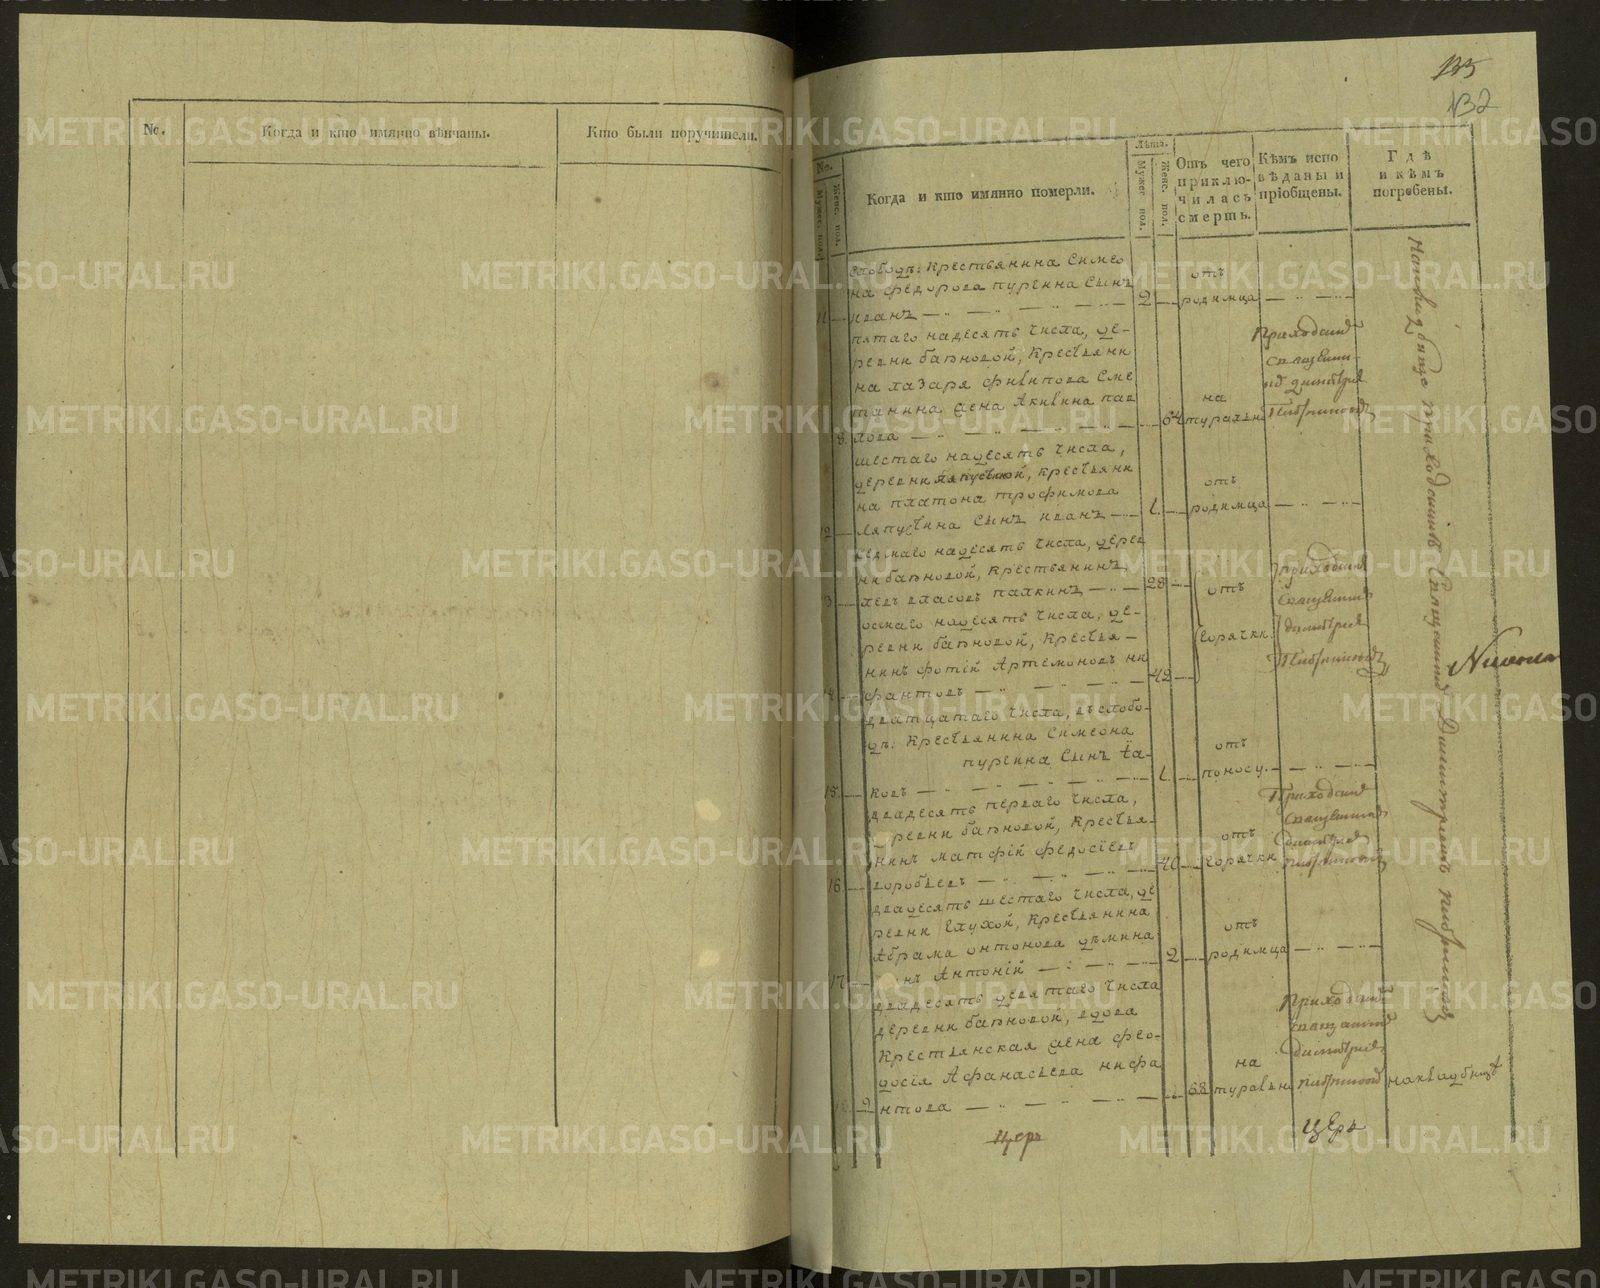 135
132
№.
Когда и кто имянно вѣнчаны.
Кто были поручители.
№.
Мужес. пол.
Женс. пол.
Когда и кто имянно померли.
Лѣта.
Мужес. пол.
Женс. пол.
Отъ чего приключилась смерть.
Кѣмъ исповѣданы и пріобщены.
Гдѣ и кѣмъ погребены.
слободѣ: крестьянина Симео
на Федорова пуреина сынъ
11 Иванъ 2 отъ родимца
пятаго надесять числа, де-
ревни баѣновой, крестьяни
на Лазаря Филипова Сме
танина жена Акилина пав
8 лова 64 натурально Приходскимъ священни димитріе
шестаго надесять числа,
деревни Ляпустиной, крестьяни
на платона трофимова
12 Ляпустина сынъ Иванъ 1 отъ родимца
седмаго надесять числа, дерев
ни баѣновой, крестьянинъ
13 левъ власовъ палкинъ 28 отъ горячки приходским священникъ димитріе
осмаго надесять числа, де-
ревни баѣновой, крестья-
нинъ фотій Артемоновъ ни
14 фантовъ 42
дватцатаго числа, въ слобо-
дѣ: крестьянина Симеона
пуреина сынъ іа-
15. ковъ 1 отъ поносу.
двадесять перваго числа,
ревни баѣновой, крестья-
нинъ матфій федосіевъ
16 воробьевъ 40 отъ горячки Приходским священникъ димитріе
двадесять шестаго числа, де
ревни глухой, крестьянина
Абрама онтонова дѣмина
17 нъ Антоній 2 отъ родимца
двадесять девятаго числа
деревни баѣновой, вдова
крестьянская жена фео-
досія Афанасьева нифа
9 нтова 68 натурально Приходским священник димитріе на кладбищѣ
На кладбище приходскимъ священникомъ Димитріемъ
Никола
церь
церь
METRIKI.GASO-URAL.RU